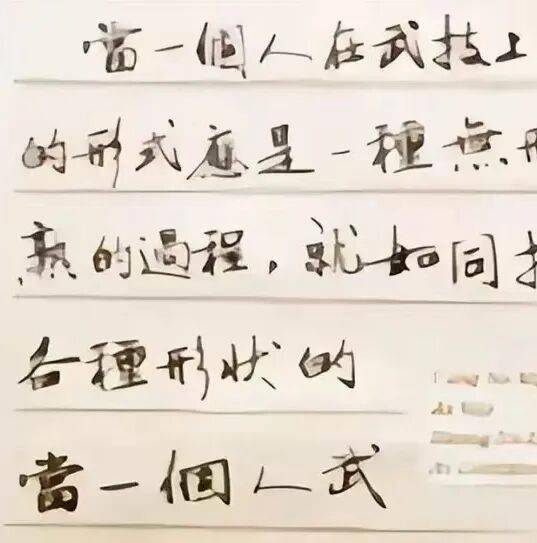 當一個人在武技上
的形式應是一種無形
熟的過程，就如同
各種形狀的
當一個人武